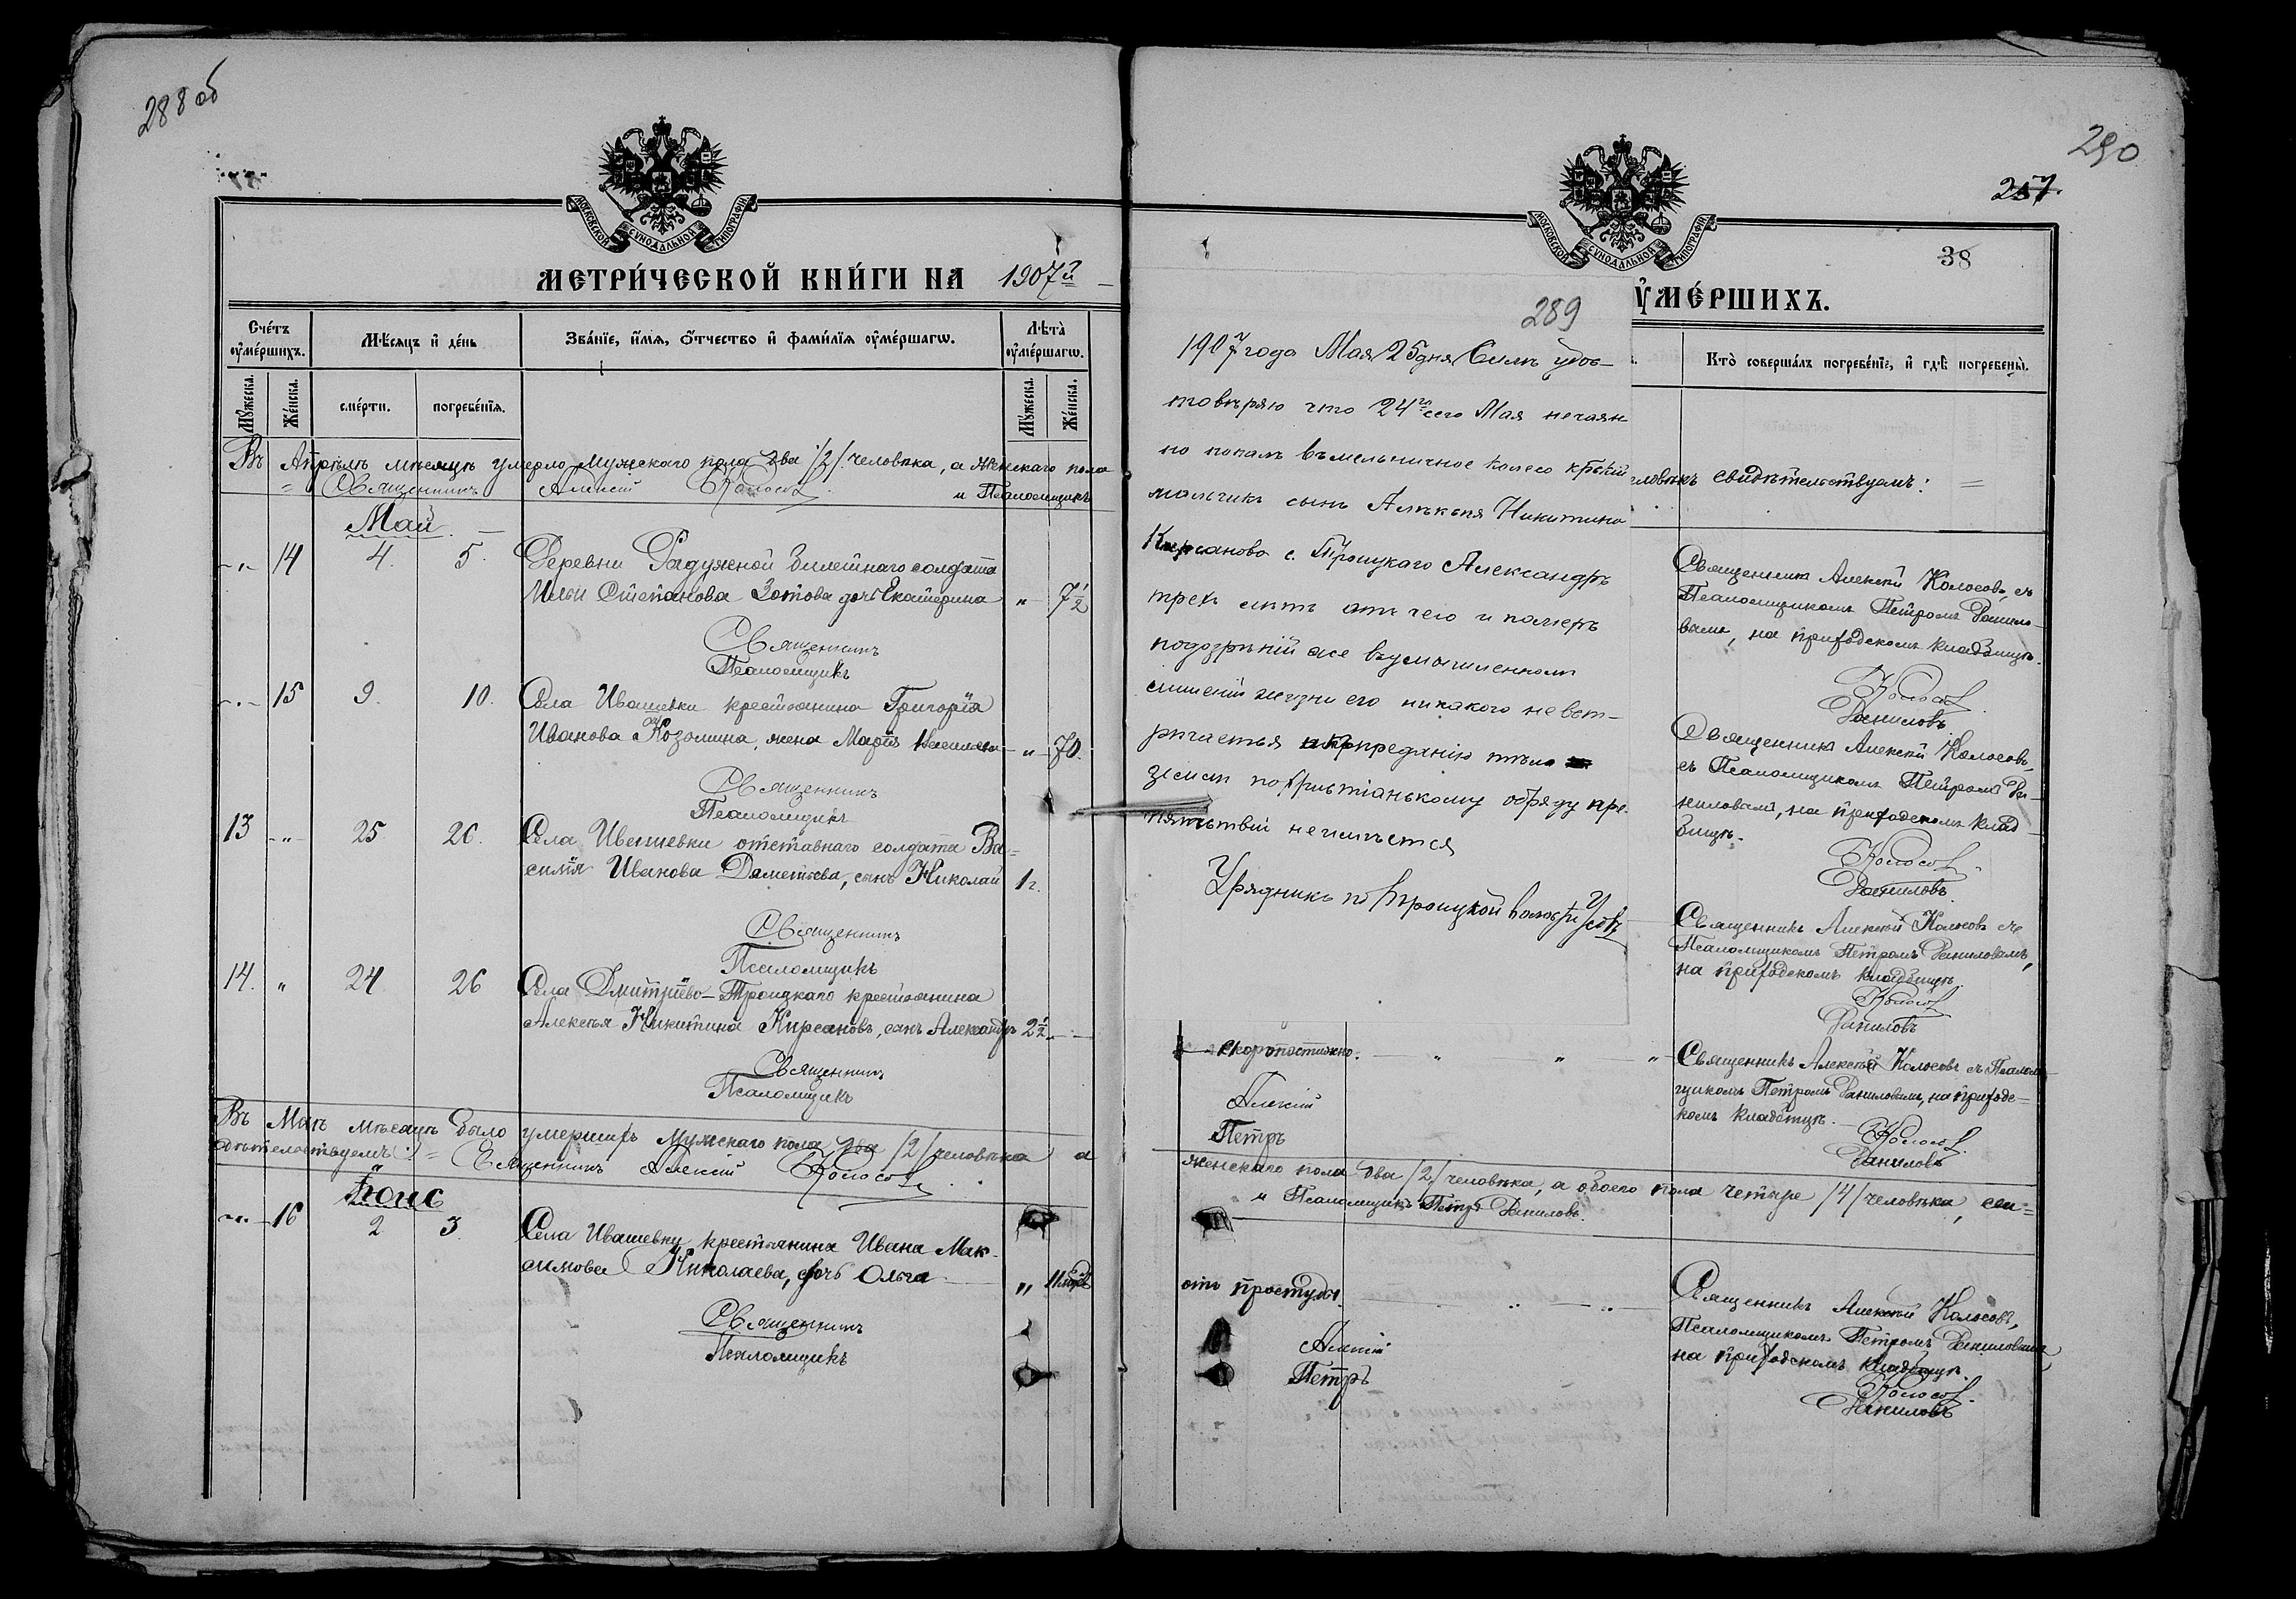 288 об
МЕТРИ́ЧЕСКОЙ КНИ́ГИ НА 1907 й
Сче́тъ ᲂу҆ме́ршихъ.
Мѣ́сяцъ и҆ де́нь
Зва́нїе, и҆́мѧ, ѻ҆́тчество и҆ фами́лїѧ ᲂу҆ме́ршагѡ.
Лѣ̀та ᲂу҆ме́ршагѡ.
Мꙋ́жеска.
Же́нска.
сме́рти.
погребе́нїѧ.
Мꙋ́жеска.
Же́нска.
Въ Апрѣлѣ мѣсяцѣ умерло мужскаго пола два /2/ человѣка, а женскаго пола
= Священникъ Алексій Колосовъ. и Псаломщикъ
Май
-"- 14 4. 5. Деревни Радужной билетнаго солдата
Ильи Степанова Зотова дочь Екатерина " 7½
Священникъ
Псаломщикъ
-"- 15 9. 10. Села Ивашевки крестьянина Григорія
Иванова Козолина, жена Марія " 70.
Священникъ
Псаломщикъ
13 -"- 25 26. Села Ивашевки отставнаго солдата Ва=
силія Иванова Дементьева, сынъ Николай 1 г.
Священникъ
Псаломщикъ
14. " 24 26 Села Дмитріево-Троицкаго крестьянина
Алексѣя Никитина Кирсановъ, сынъ Александръ 2½
Священникъ
Псаломщикъ
Въ Маѣ мѣсяцѣ было умершихъ мужскаго пола два /2/ человѣка а
дѣтельствуемъ: = Священникъ Алексій Колосовъ
Іюнь
-"- 16 2 3. Села Ивашевки крестьянина Ивана Мак-
симова Николаева, дочь Ольга " 11 мѣсяц.
Священникъ
Псаломщикъ
290
257.
38
ᲂУ҆МЕ́РШИХЪ.
Кто̀ соверша́лъ погребе́нїе, и҆ гдѣ̀ погребены̀.
289
1907 года Мая 25 дня Симъ удос-
товѣряю что 24го сего Мая нечаян
но попалъ въ мельничное колесо
мальчикъ сынъ Алѣксѣя Никитина
Кирсанова с. Троицкаго Александръ
трехъ лѣтъ отъ чего и померъ
подозрѣній же въ умышленномъ
лишеніи жизни его никакого не вст-
рѣчается преданію тѣла
земли по христіанскому обряду пре-
пятствій не имѣется
Урядникъ по Троицкой волости Усовъ
человѣкъ свидѣтельствуемъ: =
Священникъ Алексѣй Колосовъ, съ
Псаломщикомъ Петромъ Данило-
вымъ, на приходскомъ кладбищѣ.
Колосовъ.
Даниловъ
Священникъ Алексѣй Колосовъ,
съ Псаломщикомъ Петромъ Да-
ниловымъ, на приходскомъ клад-
бищѣ.
Колосовъ.
Даниловъ.
Священникъ Алексѣй Колосовъ съ
Псаломщикомъ Петромъ Даниловымъ,
на приходскомъ кладбищѣ.
Колосовъ
Даниловъ
скоропостижно. " " " Священникъ Алексѣй Колосовъ съ Псалом-
щикомъ Петромъ Даниловымъ, на приход-
скомъ кладбищѣ.
Алексій Колосовъ.
Петръ Даниловъ
женскаго пола два /2/ человѣка, а обоего пола четыре /4/ человѣка, сви=
и Псаломщикъ Петръ Даниловъ.
отъ простуды. " " Священникъ Алексѣй Колосовъ,
Псаломщикомъ Петромъ Даниловымъ
на приходскомъ кладбищѣ.
Алексій Колосовъ.
Петръ Даниловъ